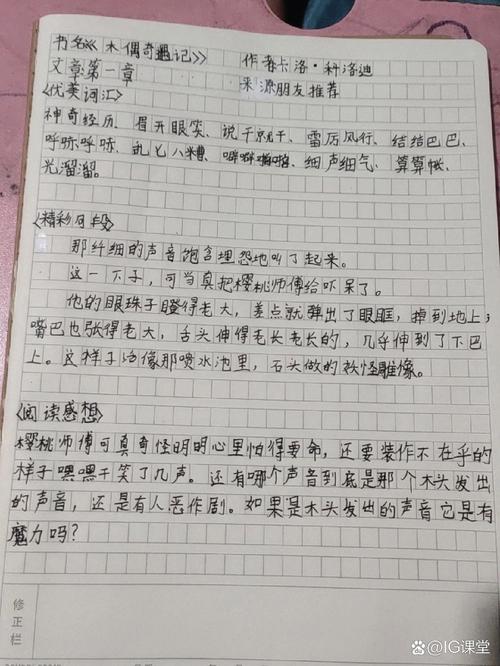 书名《木偶奇遇记》 作者卡洛·科洛迪
文章第一章 来源朋友推荐
〈优美词汇〉
神奇经历、眉开眼笑、说干就干、雷厉风行、结结巴巴、
呼哧呼哧、乱七八糟、噼噼啪啪、细声细气、算算帐、
光溜溜。
〈精彩句段〉
那纤细的声音饱含埋怨地叫了起来。
这一下子,可当真把樱桃师傅给吓呆了。
他的眼珠子瞪得老大,差点就弹出了眼眶,掉到地上;
嘴巴也张得老大,舌头伸得老长老长的,几乎伸到了下巴
上。这样子活像那喷水池里,石头做的妖怪雕像。
〈阅读感想〉
樱桃师傅可真奇怪明明心里怕得要命,还要装作不在乎的
样子嘿嘿干笑了几声。还有哪个声音到底是那个木头发出
的声音,还是有人恶作剧。如果是木头发出的声音它是有
魔力吗?
修正栏
@IG课堂